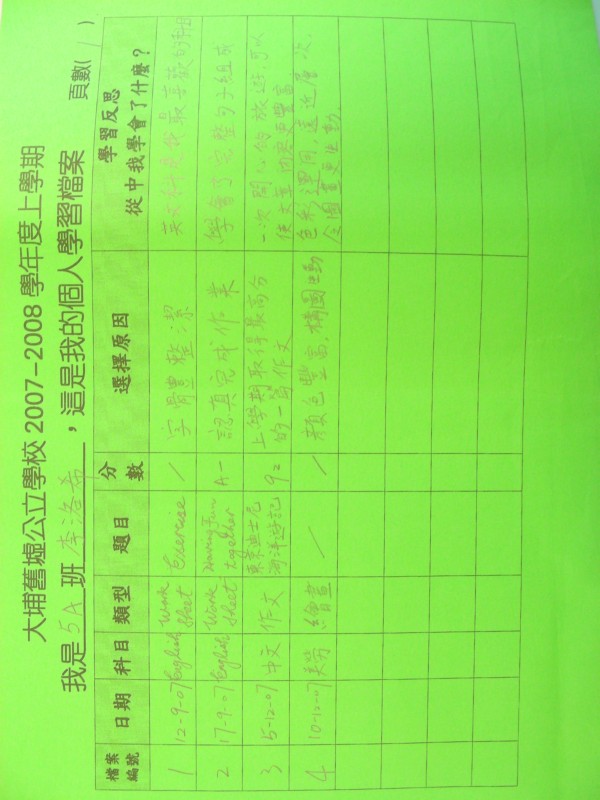 大埔舊墟公立學校 2007-2008 學年度上學期
我是 5A 班 李洛希，這是我的個人學習檔案 頁數( 1 )
檔案編號 日期 科目 類型 題目 分數 選擇原因 學習反思 從中我學會了什麼？
1 12-9-07 English Work Sheet Exercise / 字體整潔 英文科是我最喜歡的科目
2 17-9-07 English Work sheet Having Fun together A- 認真完成作業 學會了完整句子組成
3 5-12-07 中文 作文 東京迪士尼海洋遊記 92 上學期取得最高分的一篇作文 一次開心的旅遊，可以使文章內容更豐富
4 10-12-07 美勞 繪畫 / / 顏色豐富，構圖生動 色彩運用，遠近層次，令圖畫更生動。